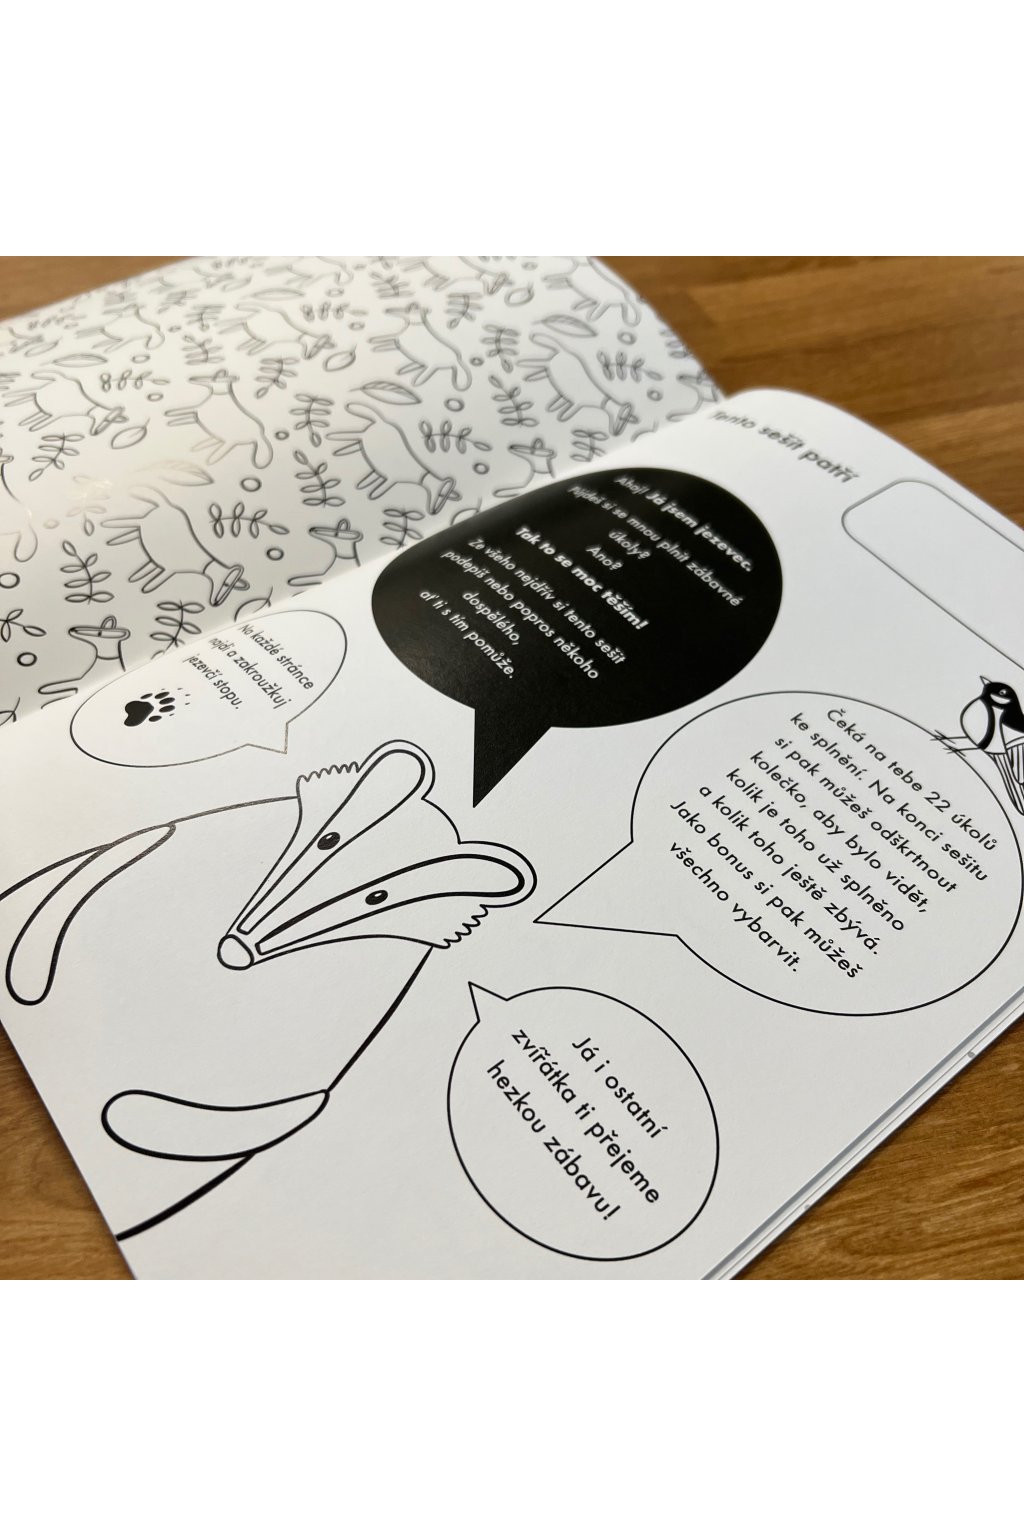 Tento sešit patří
Ahoj! Já jsem jezevec.
Půjdeš si se mnou plnit zábavné
úkoly?
Ano?
Tak to se moc těším!
Ze všeho nejdřív si tento sešit
podepiš nebo popros někoho
dospělého,
ať ti s tím pomůže.
Na každé stránce
najdi a zakroužkuj
jezevčí stopu.
Čeká na tebe 22 úkolů
ke splnění. Na konci sešitu
si pak můžeš odškrtnout
kolečko, aby bylo vidět,
kolik je toho už splněno
a kolik toho ještě zbývá.
Jako bonus si pak můžeš
všechno vybarvit.
Já i ostatní
zvířátka ti přejeme
hezkou zábavu!